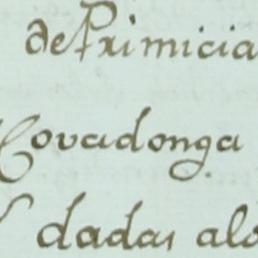 de Primicia
Covadonga
dadas alo